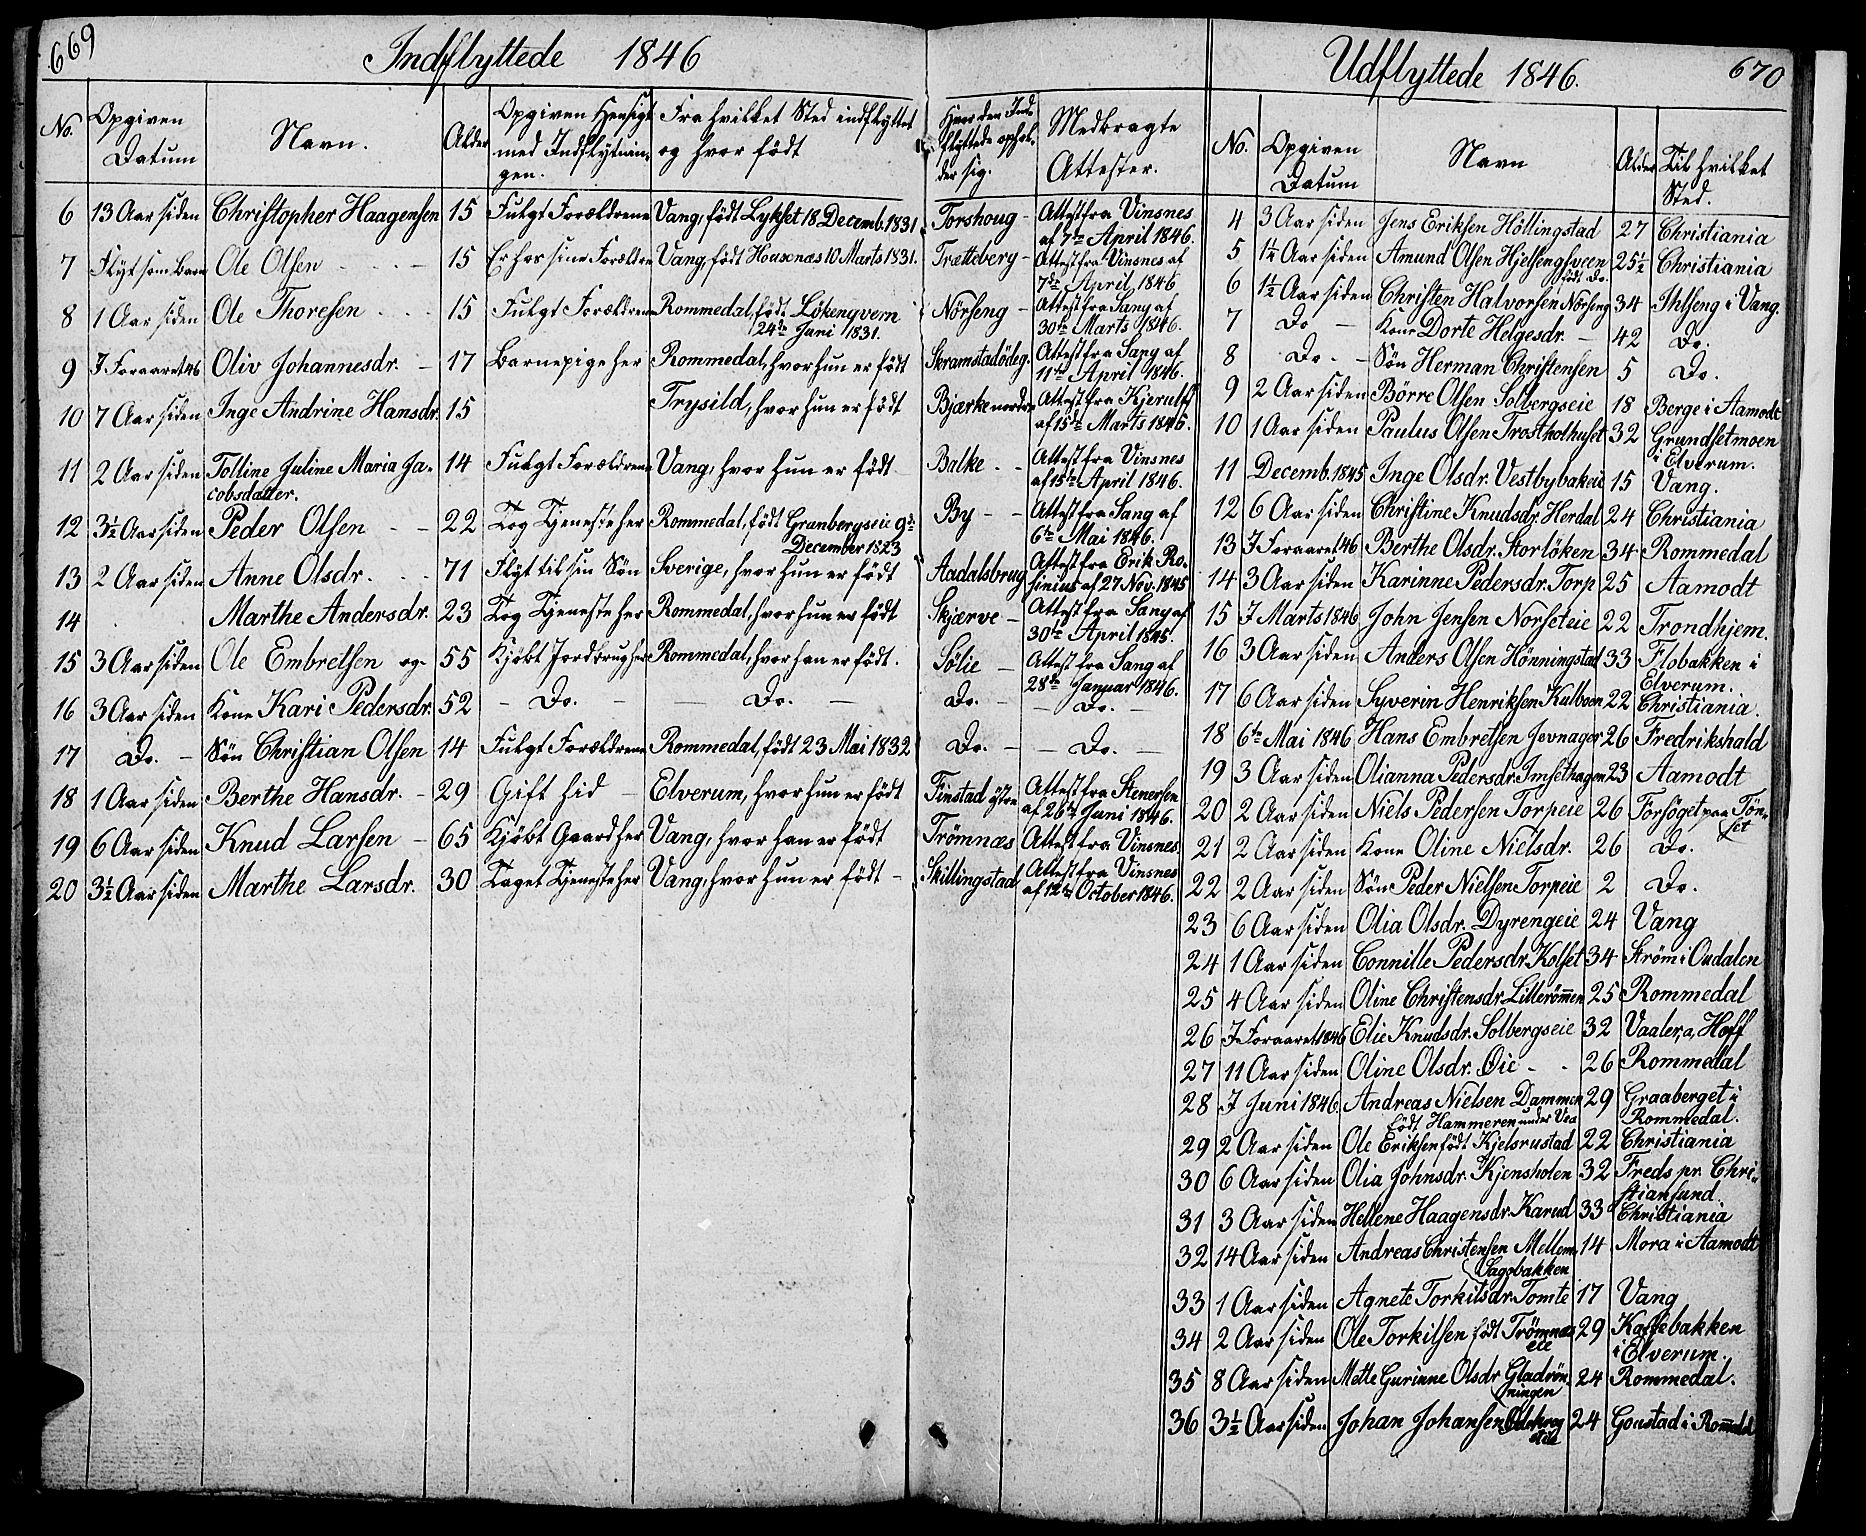 669
Indflyttede 1846
No. Opgiven Datum Navn. Alder Opgiven Hensigt med Indflytningen. Fra hvilket Sted indflyttet og hvor født Hvor den Indflyttede opholder sig. Medbragte Attester.
6 13 Aar siden Christopher Haagensen 15 Fulgt Forældrene Vang, født Lykset 18 Decemb. 1831 Torshoug - Attest fra Vinsnes af 7de April 1846.
7 Flyt som Barn Ole Olsen - - - 15 Er hos sine Forældre Vang, født Housenæs 10 Marts 1831. Trætteberg - Attest fra Vinsnes af 7de April 1846
8 1 Aar siden Ole Thoresen . . . 15 Fulgt Forældrene Rommedal, født Lökengvern 24de Juni 1831. Nörseng - Attest fra Sang af 30te Marts 1846.
9 I Foraaret 46 Oliv Johannesdr. - 17 Barnepige her Rommedal, hvor hun er født Skramstadödeg. Attest fra Sang af 11te April 1846.
10 7 Aar siden Inge Andrine Hansdr. 15 Trysild, hvor hun er født Bjærke nordre Attest fra Kjerulff af 15de Marts 1846.
11 2 Aar siden Tolline Juline Maria Jacobsdatter. 14 Fulgt Forældrene Vang, hvor hun er født Balke - - Attest fra Vinsnes af 15de April 1846.
12 3½ Aar siden Peder Olsen - - 22 Tog Tjeneste her Rommedal, født Granbergseie 9de December 1823 By - - Attest fra Sang af 6te Mai 1846.
13 2 Aar siden Anne Olsdr. . . . 71 Flyt til sin Søn Sverige, hvor hun er født Aadalsbrug Attest fra Erik Rosinius af 27 Nov. 1845
14 Marthe Andersdr. 23 Tog Tjeneste her Rommedal, hvor hun er født Skjærve - Attest fra Sang af 30te April 1845.
15 3 Aar siden Ole Embretsen og 55 Kjöbt Jordbrug her Rommedal, hvor han er født. Sølie - Attest fra Sang af 28de Januar 1846.
16 3 Aar siden Kone Kari Pedersdr. 52 - Do. - - Do. - Do. - - Do. -
17 Do. - Sön Christian Olsen 14 Fulgt Forældrene Rommedal, født 23 Mai 1832 Do. - - Do. -
18 1 Aar siden Berthe Hansdr. - 29 Gift hid - Elverum, hvor hun er født Finstad östre Attest fra Stenersen af 26de Juni 1846.
19 6 Aar siden Knud Larsen - 65 Kjöbt Gaard her Vang, hvor han er født Trömnæs Attest fra Vinsnes
20 3½ Aar siden Marthe Larsdr. 30 Taget Tjeneste her Vang, hvor hun er født - Skillingstad Attest fra Vinsnes af 12te October 1846.
Udflyttede 1846. 670
No. Opgiven Datum Navn Alder Til hvilket Sted.
4 3 Aar siden Jens Eriksen Höllingstad 27 Christiania
5 1¼ Aar siden Amund Olsen Hjelsengsveen født Do. 25½ Christiania
6 1½ Aar siden Christen Halvorsen Nörseng 34 Ihlseng i Vang.
7 Do - Kone Dorte Helgesdr. - 42 Do.
8 Do. - Sön Herman Christensen 5 Do.
9 2 Aar siden Börre Olsen Solbergseie 18 Berge i Aamodt
10 1 Aar siden Paulus Olsen Trostholhuset 32 Grundsetmoen i Elverum.
11 Decemb. 1845 Inge Olsdr. Vestbybakeie 15 Vang.
12 6 Aar siden Christine Knudsdr. Herdal 24 Christiania
13 I Foraaret 46 Berthe Olsdr. Storlöken 34 Rommedal
14 3 Aar siden Karinne Pedersdr. Torp 25 Aamodt
15 I Marts 1846 John Jensen Norseteie 22 Trondhjem.
16 3 Aar siden Anders Olsen Hönningstad 33 Flobakken i Elverum.
17 6 Aar siden Syverin Henriksen Kulboen 22 Christiania.
18 6te Mai 1846 Hans Embretsen Jevnager 26 Fredrikshald
19 3 Aar siden Olianna Pedersdr. Imsethagen 23 Aamodt
20 2 Aar siden Niels Pedersen Torpeie 26 Forsöget paa Tönset
21 2 Aar siden Kone Oline Nielsdr. 26 Do.
22 2 Aar siden Sön Peder Nielsen Torpeie 2 Do.
23 6 Aar siden Olia Olsdr. Dyrengeie 24 Vang
24 1 Aar siden Connille Pedersdr. Kolset 34 Ström i Oudalen
25 4 Aar siden Oline Christensdr. Lilleröm̄en 25 Rommedal
26 I Foraaret 1846 Elie Knudsdr. Solbergseie 32 Vaaler, a, Hoff
27 11 Aar siden Oline Olsdr. Øie - . 26 Rommedal
28 I Juni 1846 Andreas Nielsen Dammen født Hammeren under Vea 29 Graaberget i Rommedal.
29 2 Aar siden Ole Eriksen født Kjelsrustad 22 Christiania
30 6 Aar siden Olia Johnsdr. Kjensholen 32 Freds pr. Christiansund.
31 3 Aar siden Hellene Haagensdr. Karud 33 Christiania
32 14 Aar siden Andreas Christensen Mellem Sagebakken 14 Mora i Aamodt
33 1 Aar siden Agnete Torkilsdr. Tomte 17 Vang
34 2 Aar siden Ole Torkilsen født Trömnæseie 29 Kaffebakken i Elverum.
35 8 Aar siden Mette Gurinne Olsdr Gladrönningen 24 Rommedal.
36 3½ Aar siden Johan Johansen 24 Goustad i Rom̄edal